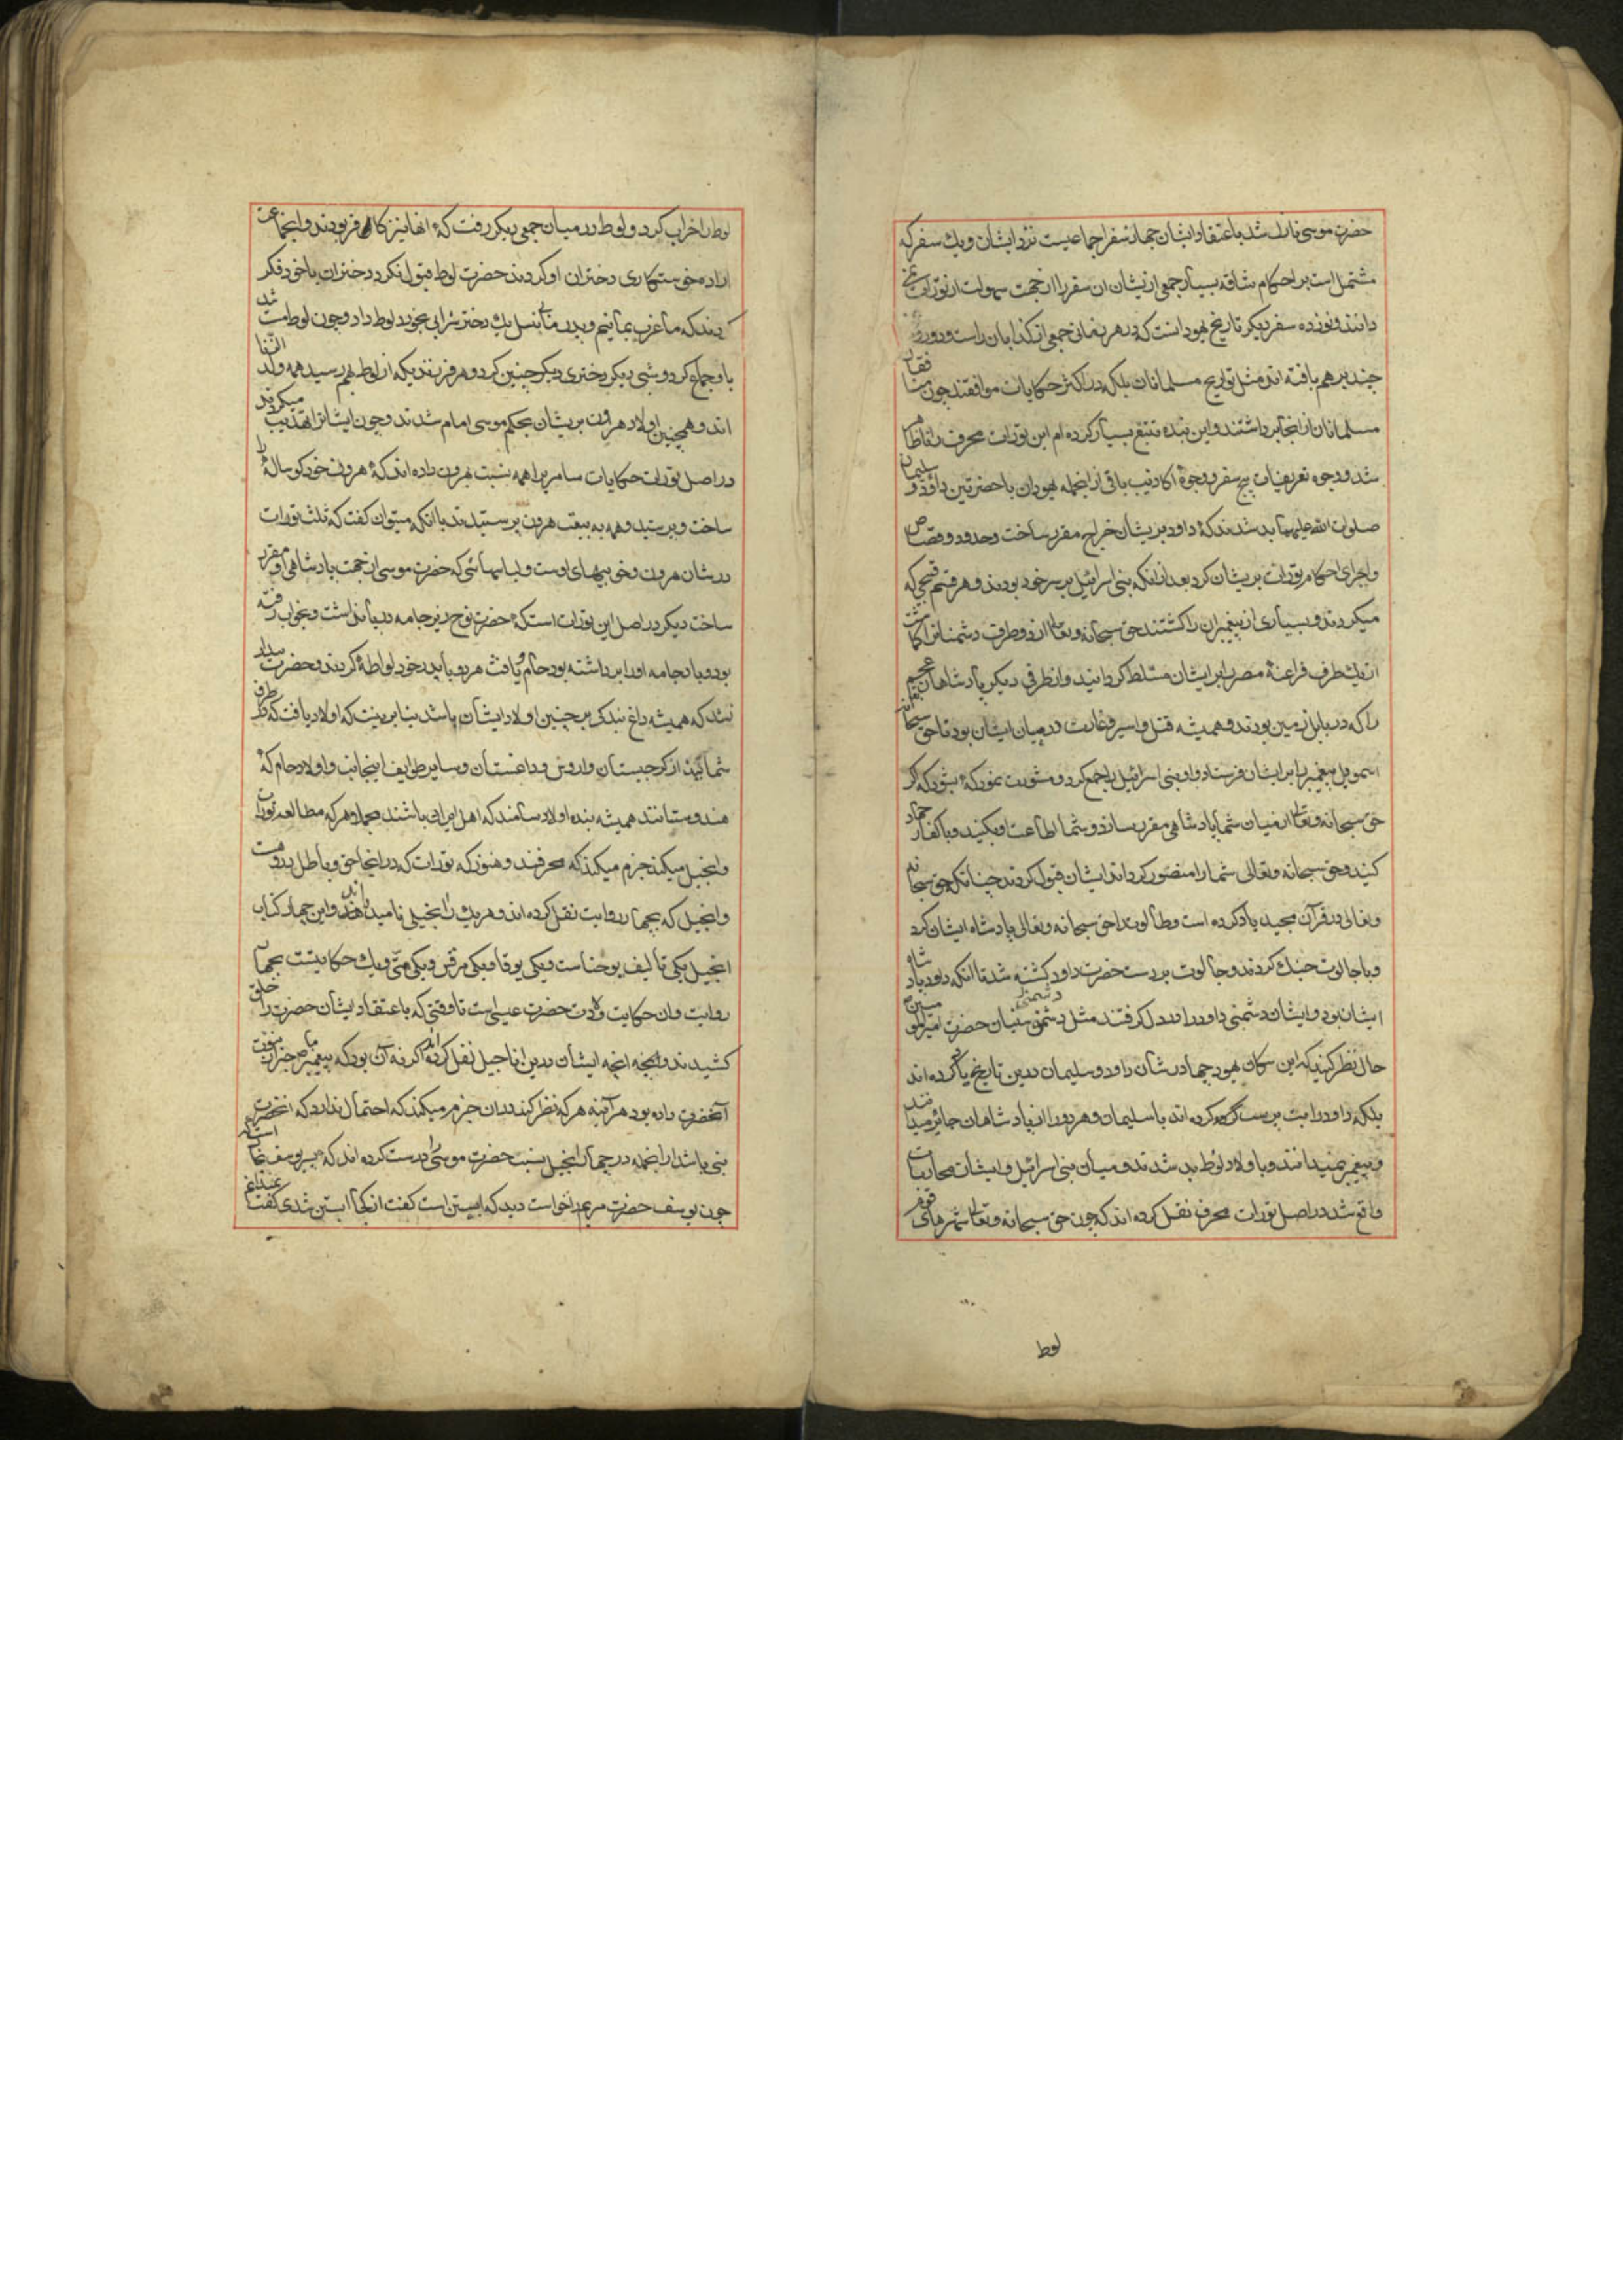 حضرت موسی نازل شد باعتقاد ایشان چهار سفر اجماعیست نزد ایشان و یك سفر که
مشتملست بر احکام شاقه بسیار جمعی از یشان ان سفر را از جهت سهولت از تورات
دانند و نوزده سفر دیکر تاریخ یهود است که در هر زمانی جمعی از کذابان راست و دروغ
چند بر هم بافته اند مثل تواریخ مسلمانان بلکه در اکثر حکایات موافقند چون
مسلمانان از انجا برداشتند و این بنده تتبع بسیار کرده ام این تورات محرف
شد و وجوه تحریفات پنج سفر و وجوه اکاذیب باقی از انجمله یهودان با حضرتین داود و سلیمان
صلوات الله علیهما بد شدند که داود بریشان خراج مقرر ساخت و حدود و قصاص
و اجرای احکام تورات بریشان کرد بعد از انکه بنی اسرائیل بر سر خود بودند و هر قسم قبحی که
میکردند و بسیاری از پیغمبران را کشتند حق سبحانه و تعالی از دو طرف دشمنانرا کماشت
از یك طرف فراعنهٔ مصر را بر ایشان مسلط کردانید و از طرفی دیکر پادشاهان عجم
را که در بابل زمین بودند و همیشه قتل و اسیر و غارت در میان ایشان بود تا حق سبحانه
اسموییل پیغمبر را بر ایشان فرستاد و او بنی اسرائیل را جمع کرد و مشورت نمود که اکر
حق سبحانه و تعالی از میان شما پادشاهی مقرر سازد و شما اطاعت او بکنید و با کفار جهاد
کنید و حق سبحانه و تعالی شما را منصور کرداند ایشان قبول کردند چنانکه حق سبحانه
و تعالی در قرآن مجید یاد کرده است و طالوت را حق سبحانه و تعالی پادشاه ایشان کرد
و با جالوت جنك کردند و جالوت بر دست حضرت داود کشته شد تا انکه داود پادشاه
ایشان بود و ایشان دشمنی داود را در دل کرفتند مثل دشمنی سنیان حضرت امیر المومنین
حال نظر کنید که این سکان یهود چها در شان داود و سلیمان درین تاریخ یاد کرده اند
بلکه داود را بت پرست کرده اند با سلیمان و هر دو را از پادشاهان جائر میدانند
و پیغمبر نمیدانند و با اولاد لوط بد شدند و میان بنی اسرائیل و ایشان محاربات
واقع شد در اصل تورات محرف نقل کرده اند که چون حق سبحانه و تعالی شهرهای قوم
لوط
لوط را خراب کرد و لوط در میان جمعی دیکر رفت که انها نیز کافر بودند و انجماعت
اراده خواستکاری دختران او کردند حضرت لوط قبول نکرد دختران با خود فکر
کردند که ما عزب بمانیم و پدر ما بی نسل یك دختر شرابی بخورد لوط داد و چون لوط مست شد
با او جماع کرد و شبی دیکر دختری دیکر چنین کرد و هر فرزندیکه از لوط بهم رسید همه ولد الزنا
اند و همچنین اولاد هرون بریشان بحکم موسی امام شدند و چون ایشانرا تهذیب میکردند
در اصل تورات حکایات سامریرا همه نسبت بهرون داده اند که هرون خود کوساله
ساخت و پرستید و همه به تبعیت هرون پرستیدند با انکه میتوان کفت که ثلث تورات
در شان هرون و خوبیهای اوست و لباسهائی که حضرت موسی از جهت پادشاهی او مقرر
ساخت دیکر در اصل این تورات است که حضرت نوح زیر جامه در پا نداشت و بخواب رفته
بود و باد جامه او را برداشته بود حام و یافث هر دو با پدر خود لواطه کردند و حضرت
نشد که همیشه داغ بندکی بر جبین اولاد ایشان باشد بنا برینست که اولاد یافث که طرف
شمالیند از کرجستان و اروس و داغستان و سایر طوایف اینجانب و اولاد حام که
هندوستانند همیشه بنده اولاد سامند که اهل ایران باشند مجملا هر که مطالعه تورات
و انجیل میکند جزم میکند که محرفند و هنوز که تورات که در انجا حق و باطل درو هست
و انجیل که بچهار روایت نقل کرده اند و هر یك را انجیلی نامیده اند و این چهار کتاب
انجیل یکی تألیف یوحناست و یکی لوقا و یکی مرقس و یکی متی و یك حکایتست بچهار
روایت و ان حکایت ولادت حضرت عیسی است تا وقتی که باعتقاد ایشان حضرت را بر حلق
کشیدند و انچه ایشان درین اناجیل نقل کرده اند اکر نه آن بود که پیغمبر ما خبر از نبوت
آنحضرت داده بود هر آینه هر که نظر کند دران جزم میکند که احتمال ندارد که انحضرت
نبی باشد از انجمله در چهار انجیل نسبت حضرت موسی را درست کرده اند که پسر یوسف نجار است
چون یوسف حضرت مریم را خواست دید که ابستن است کفت از کجا ابستن شدی کفت